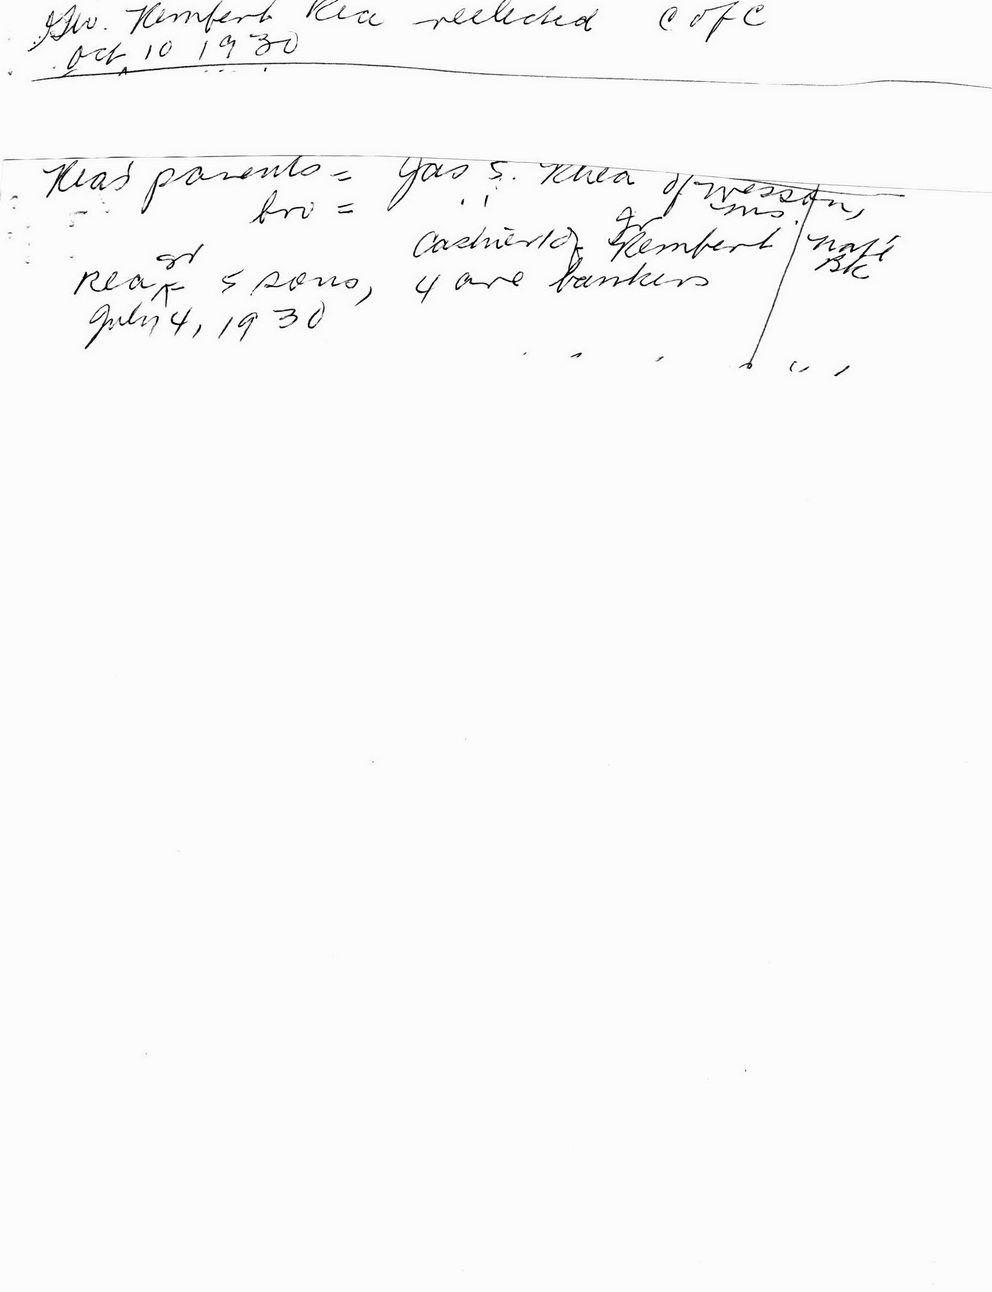 Geo. Rembert Rea reelected C of C
Oct 10 1930
Rea's parents = Jas S. Rhea of Wesson,
bro = " Ms.
Cashier of Rembert Nat'l
Rea 5 sons, 4 are bankers Bk
July 4, 1930